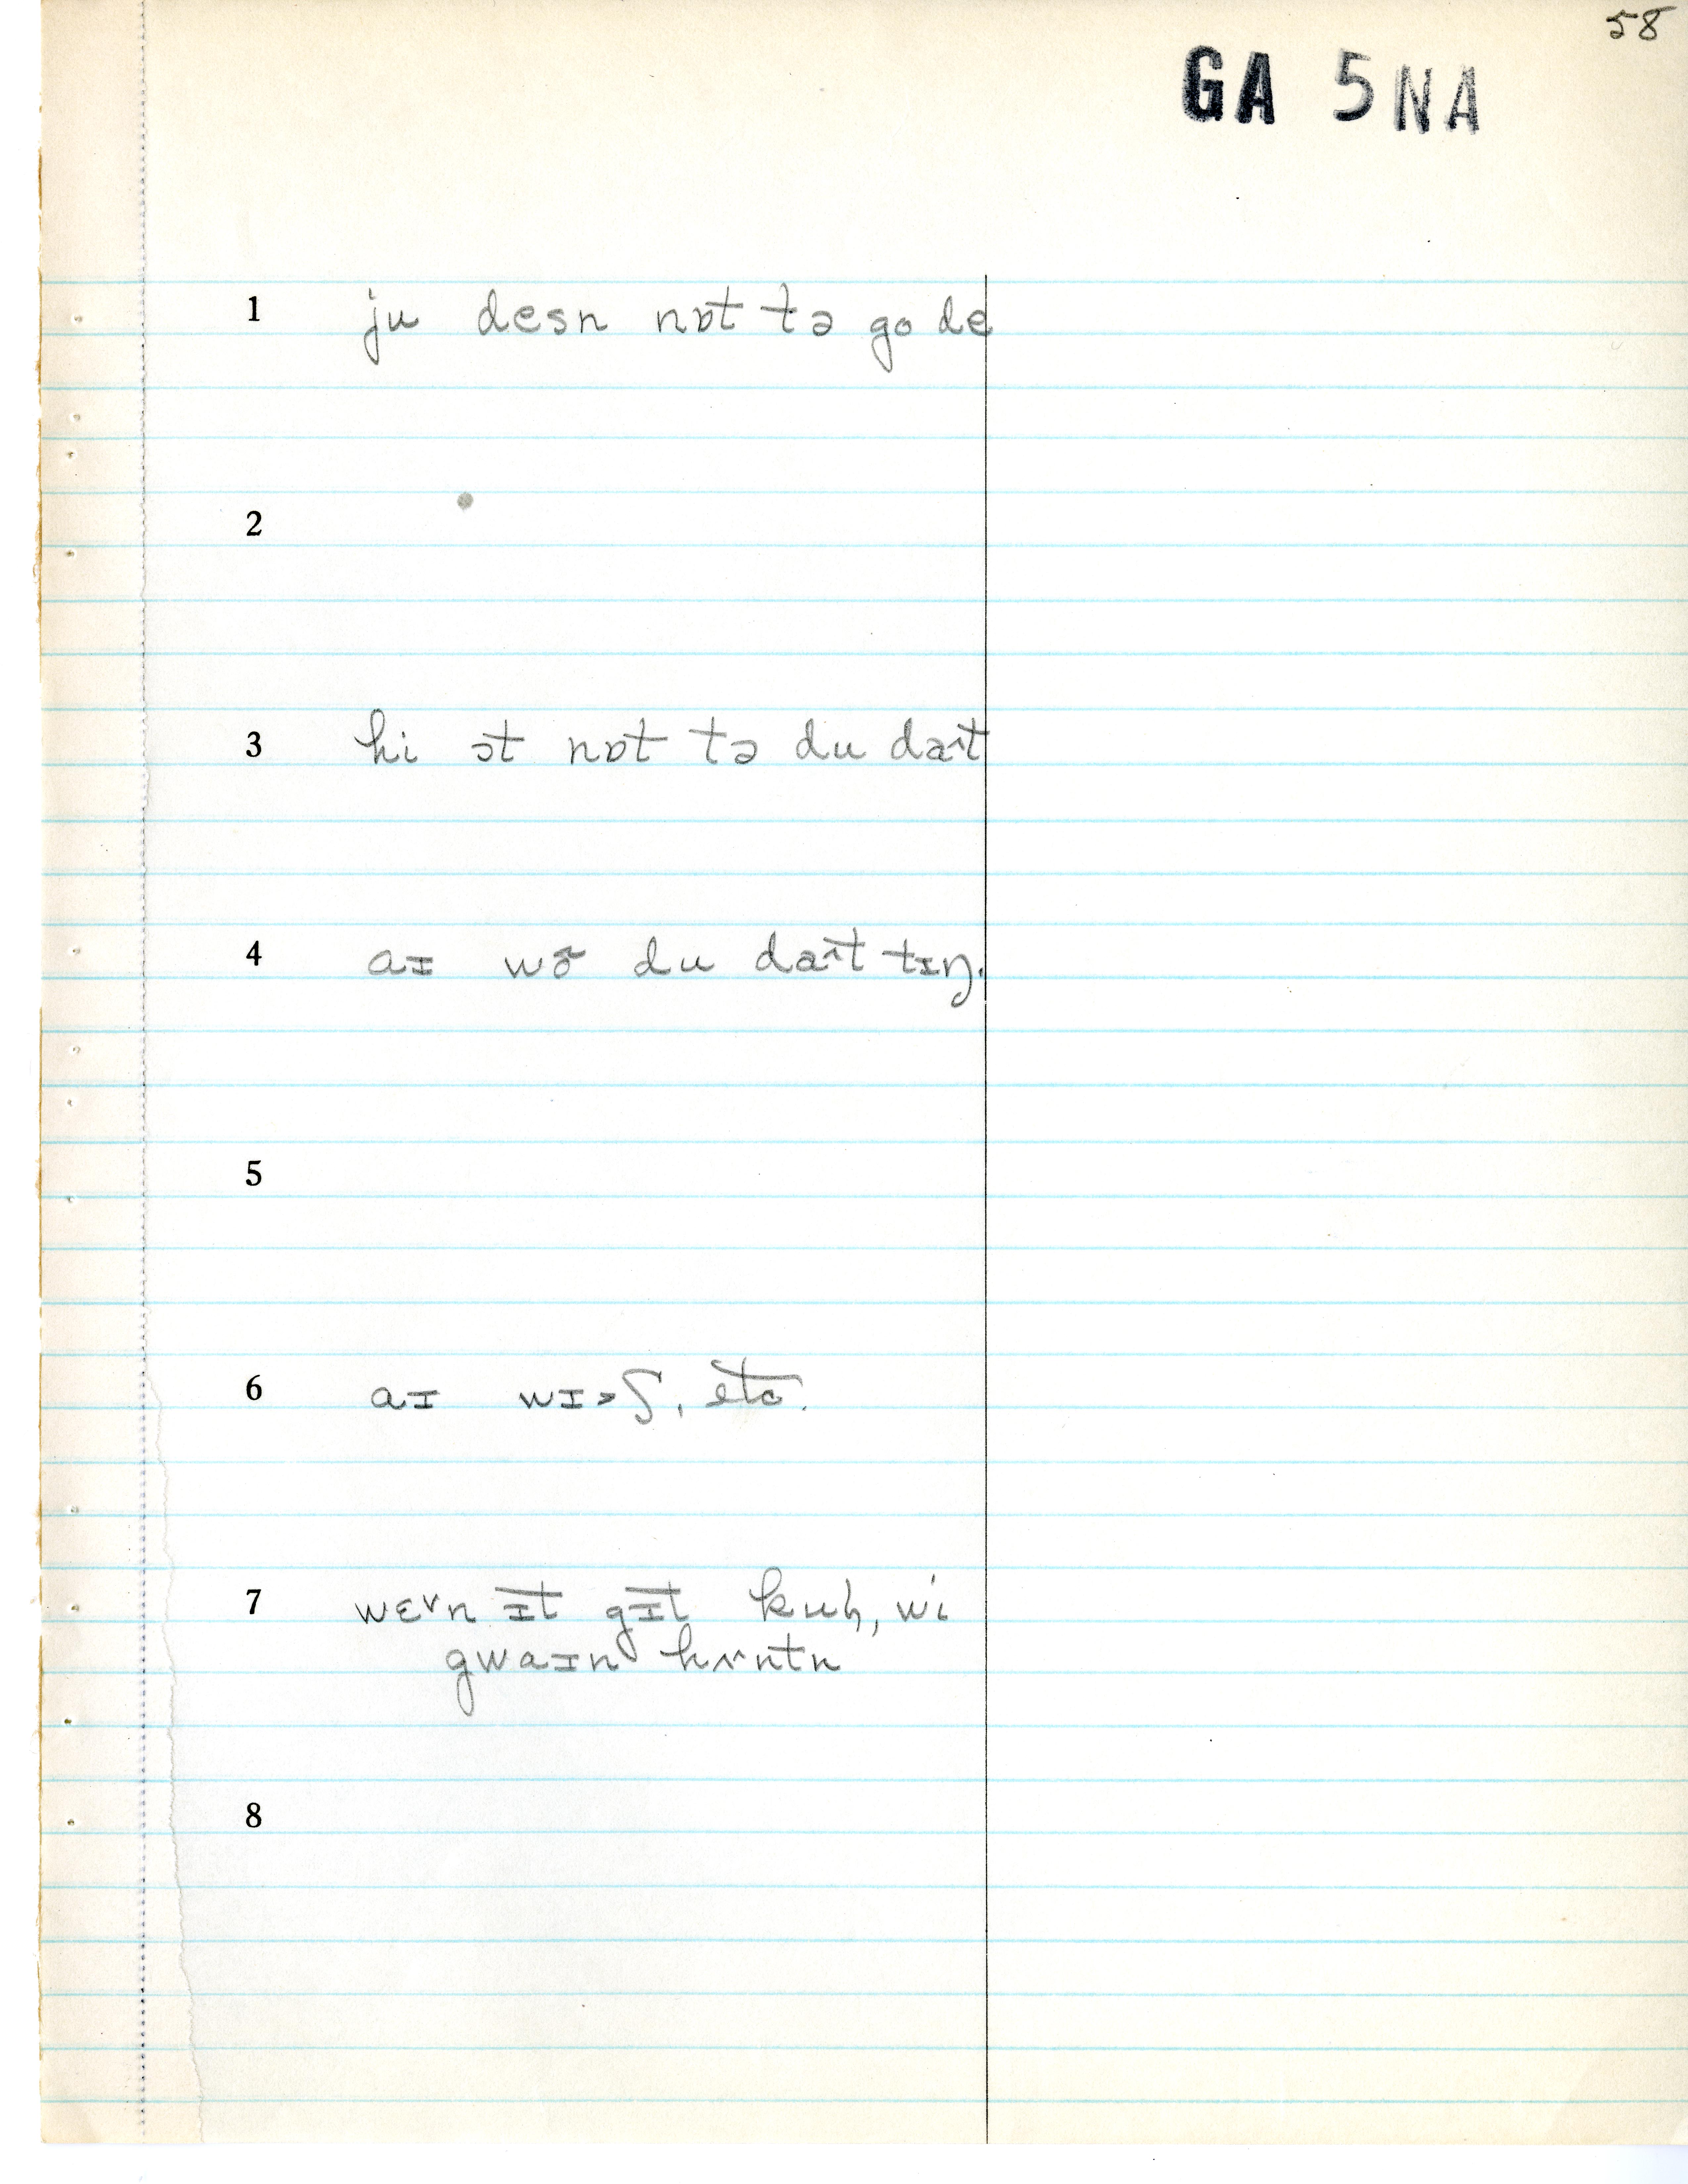 58
GA 5NA
1 ju desn nɒt tə go de
2
3 hi ɔt nɒt tə du da˄t
4 aɪ wõ du da˄t tɪŋ.
5
6 aɪ wɪ˃ʃ, etc.
7 wɛ˅n ɪt gɪt kuɫ, wi
gwaɪn hʌ˄ntn
8